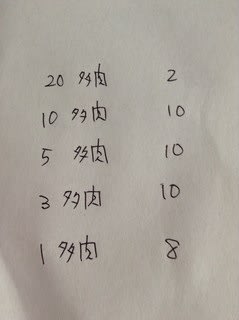 20 多肉 2
10 多肉 10
5 多肉 10
3 多肉 10
1 多肉 8